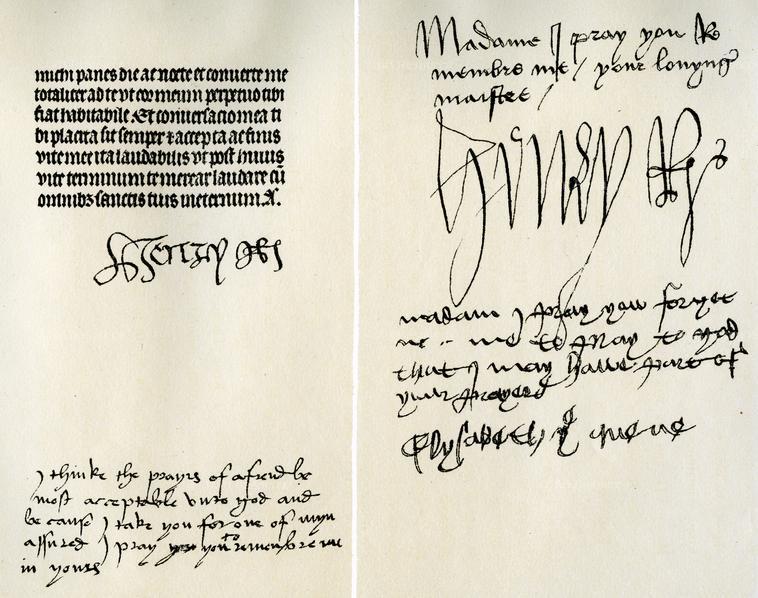 michi panes die ac nocte et converte me
totaliter ad te vt cor meum perpetuo tibi
fiat habitabile Et conversacio mea ti
bi placita sit semper et accepta ac finis
vite mee ita laudabilis vt post huius
vite terminum te merear laudare cũ
omnibꝫ sanctis tuis in eternum A.
Henry
I thinke the prayrs of a frend be
most acceptable vnto god and
be cause I take you for one of myn
assured I pray you to remembre me
in yours
Madame I pray you Re
membre me / your lovyng
maistre /
Henry R
madam I pray you forget
me to pray to god
that I may have part of
your prayers
Elysabeth ye quene